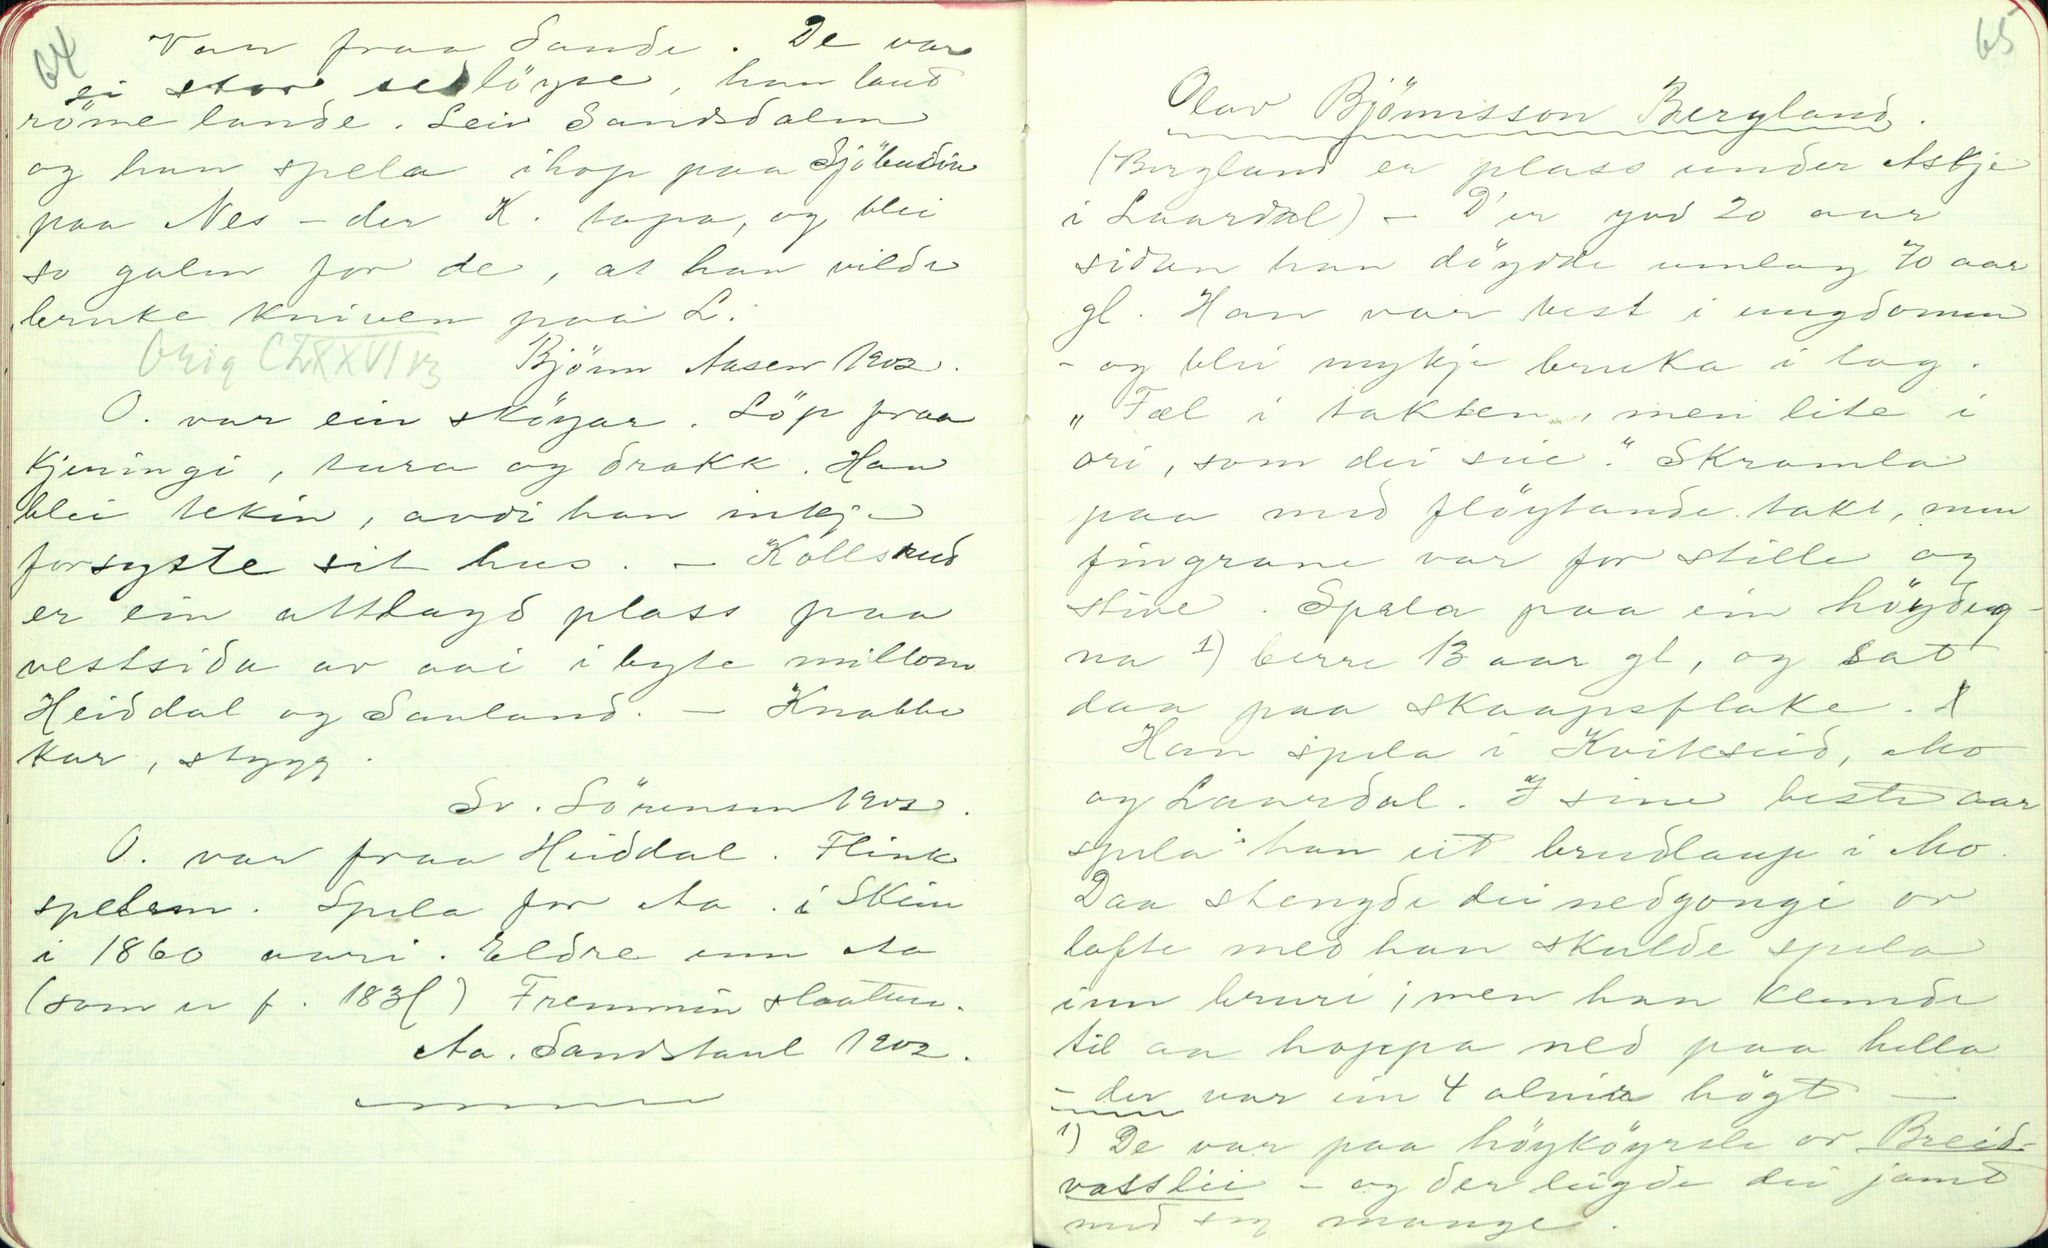 64
Van fraa Sande. De var
ei stor sedlöyse, han laut
röme lande. Leiv Sandsdalen
og han spela ihop paa Sjöbudin
paa Nes - der K. tapa, og blei
so galen for de, at han vilde
bruke kniven paa L.
Orig CLXXVI 13 Björn Aasen 1902.
O. var ein sköyar. Löp fraa
kjeringi, tura og drakk. Han
blei tekin, avdi han inkje
forsyste sit hus. - Köllsrud
er ein attlagd plass paa
vestsida av aai i byte millom
Heiddal og Sauland. - Knabbe
kar, stygg.
Sv. Sörensen 1902.
O. var fraa Heiddal. Flink
spelem. Spela for Aa. i Skien
i 1860 aari. Eldre enn Aa
(som er f. 1831) Fremmin slaattur.
Aa. Sandstaul 1902.
65
Olav Björnsson Bergland.
(Bergland er plass under Askje
i Laardal) - D'er god 20 aar
sidan han döydde umlag 70 aar
gl. Han var best i ungdomen
- og blei mykje bruka i lag.
"Fæl i takten, men lite i
ori, som dei seie." Skramla
paa med flöytande takt, men
fingrane var for stille og
stive. Spela paa ein höydog-
na 1) berre 13 aar gl, og sat
daa paa skaapsflake.
Han spela i Kviteseid, Mo
og Laardal. I sine beste aar
spela han eit brudlaup i Mo.
Daa stengde dei nedgongi or
lofte med han skulde spela
inn bruri; men han klemde
til aa hoppa ned paa hella
- der var ein 4 alnir högt -
1) De var paa höyköyrsle or Breid-
vasslii - og der leigde dei jamt
med seg mange.